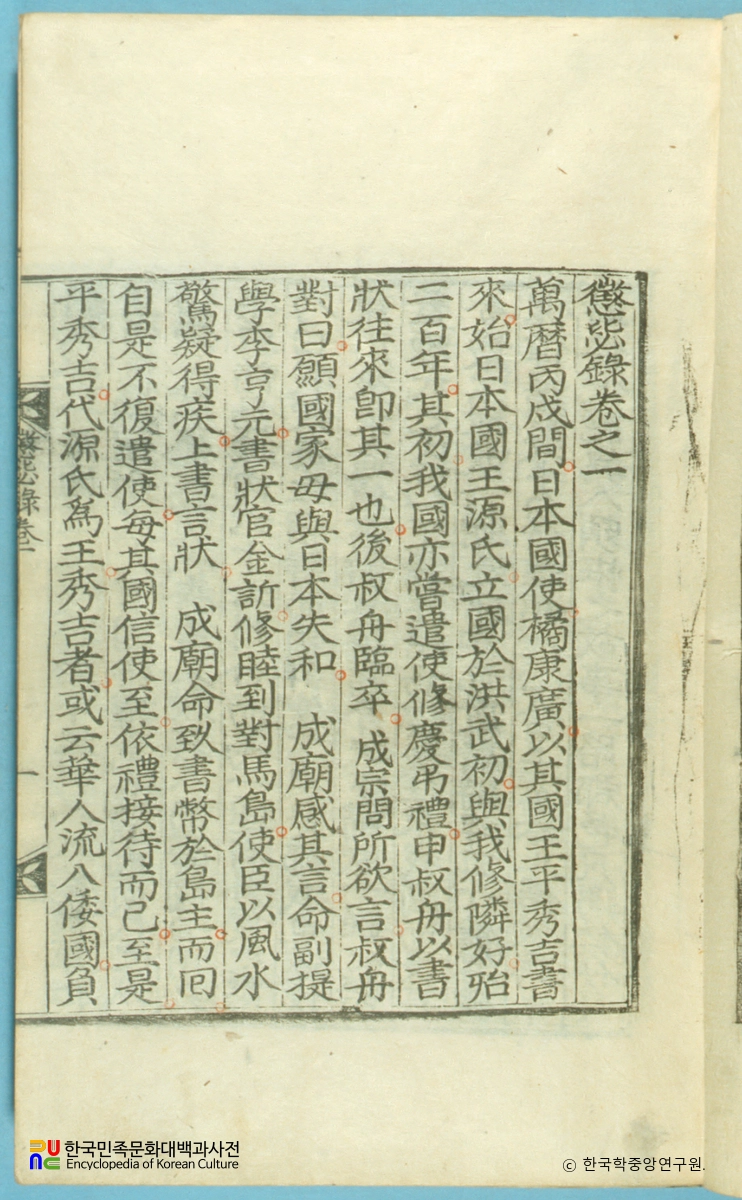 懲毖錄卷之一
萬曆丙戌間日本國使橘康廣以其國王平秀吉書
來始日本國王源氏立國於洪武初與我修隣好殆
二百年其初我國亦嘗遣使修慶吊禮申叔舟以書
狀往來卽其一也後叔舟臨卒 成宗問所欲言叔舟
對曰願國家毋與日本失和 成廟感其言命副提
學李亨元書狀官金訢修睦到對馬島使臣以風水
驚疑得疾上書言狀 成廟命致書幣於島主而回
自是不復遣使每其國信使至依禮接待而已至是
平秀吉代源氏爲王秀吉者或云華人流入倭國負
懲毖錄卷一
一
한국민족문화대백과사전
Encyclopedia of Korean Culture
© 한국학중앙연구원.